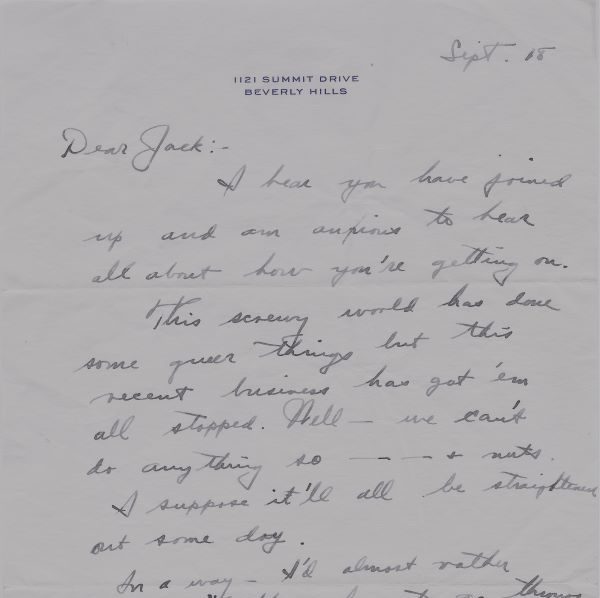 Sept. 18
1121 SUMMIT DRIVE
BEVERLY HILLS
Dear Jack:-
I hear you have joined
up and am anxious to hear
all about how you're getting on.
This screwy world has done
some queer things but this
recent business has got 'em
all stopped. Well - we can't
do anything so — — — & nuts.
I suppose it'll all be straightened
out some day.
In a way - I'd almost rather
to go through